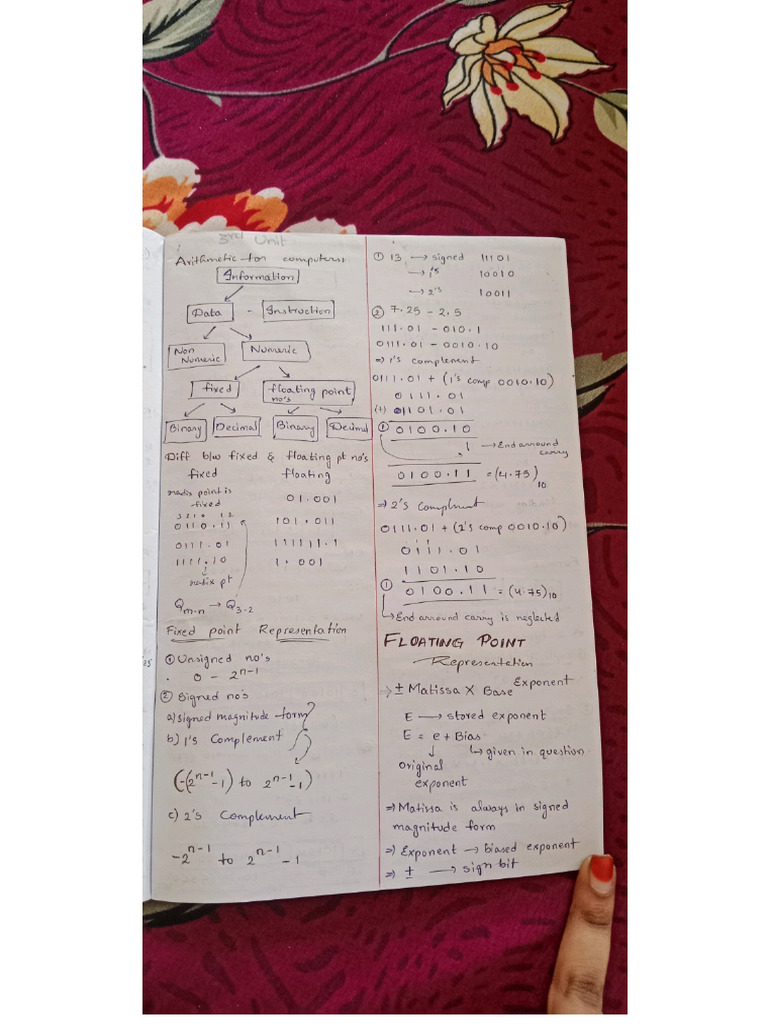 3rd Unit
Arithmetic for computers:
Information
Data - Instruction
Non Numeric
Numeric
fixed
floating point no's
Binary
Decimal
Binary
Decimal
Diff b/w fixed & floating pt no's
fixed
floating
radix point is
fixed
3 2 1 0 1 2
0110.11
0111.01
1111.10
radix pt
01.001
101.011
111111.1
1.001
Qm.n → Q3.2
Fixed point Representation
① Unsigned no's
0 - 2^n-1
② Signed no's
a) signed magnitude form
b) 1's Complement
(-(2^n-1 -1) to 2^n-1 -1)
c) 2's Complement
-2^n-1 to 2^n-1 -1
① 13 → signed 11101
→ 1's 10010
→ 2's 10011
② 7.25 - 2.5
111.01 - 010.1
0111.01 - 0010.10
⇒ 1's complement
0111.01 + (1's comp 0010.10)
0111.01
(+) 1101.01
① 0100.10
→ End arround carry
0100.11 = (4.75)10
⇒ 2's Complment
0111.01 + (2's comp 0010.10)
0111.01
1101.10
① 0100.11 = (4.75)10
→ End arround carry is neglected
FLOATING POINT
Representation
→ ± Matissa X Base^Exponent
E → stored exponent
E = e + Bias
↓ ↳ given in question
Original
exponent
⇒ Matissa is always in signed
magnitude form
⇒ Exponent → biased exponent
⇒ ± → sign bit